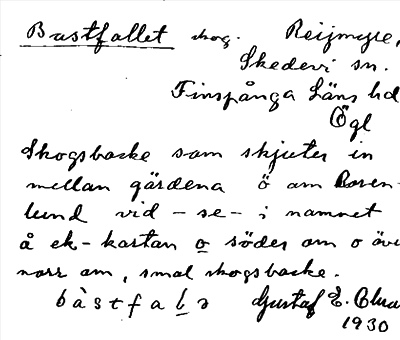 Bastfallet skog. Reijmyre,
Skedevi sn.
Finspånga Läns hd
Ögl
Skogsbacke som skjuter in
mellan gärdena ö om Rosen-
lund vid - se - i namnet
å ek-kartan o söder om o även
norr om, smal skogsbacke.
bàstfalə Gustaf E.
1930